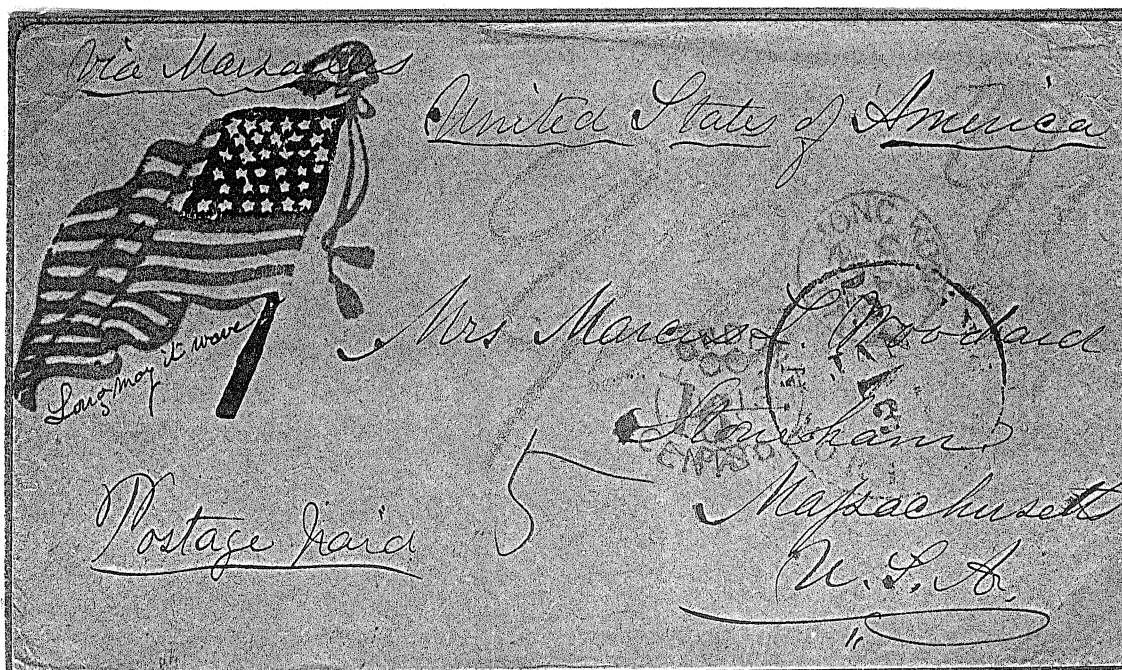 Via Marseilles
United States of America
Long may it wave
Mrs Marcus L. Woodard
Stoneham
Massachusetts
U. S. A.
Postage paid
5